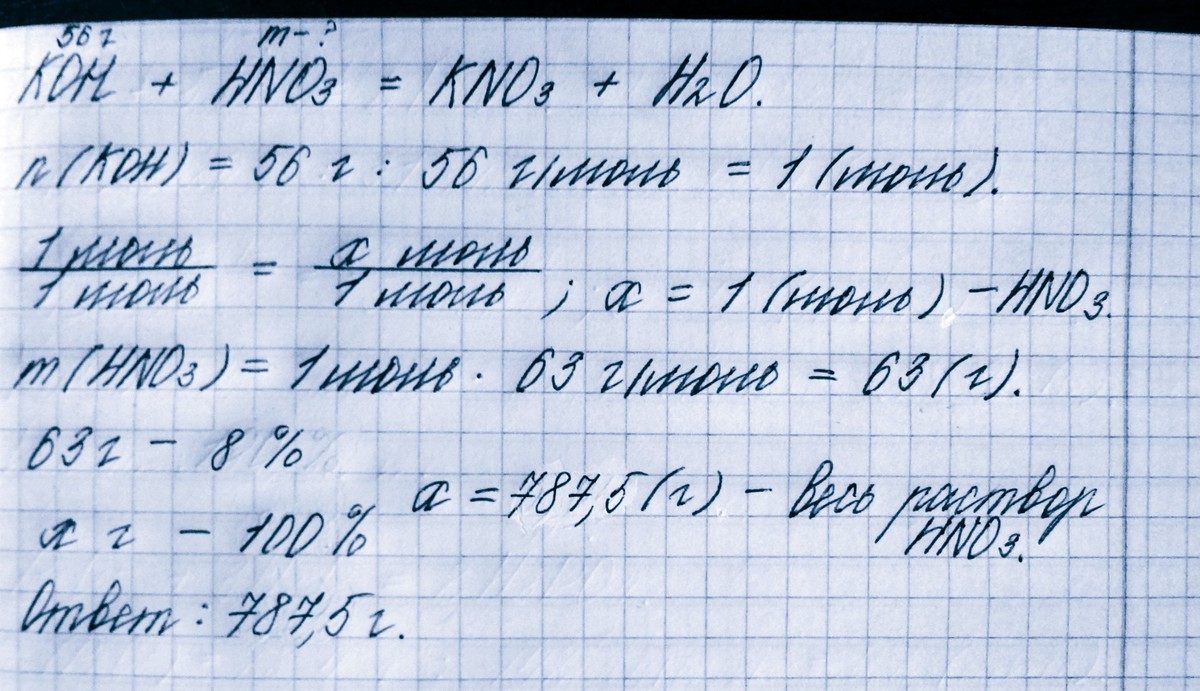 56 г m - ?
KOH + HNO₃ = KNO₃ + H₂O.
n(KOH) = 56 г : 56 г/моль = 1 (моль).
1 моль / 1 моль = x моль / 1 моль ; x = 1 (моль) - HNO₃.
m(HNO₃) = 1 моль · 63 г/моль = 63 (г).
63 г - 8 %
x г - 100 % x = 787,5 (г) - весь раствор
HNO₃.
Ответ: 787,5 г.